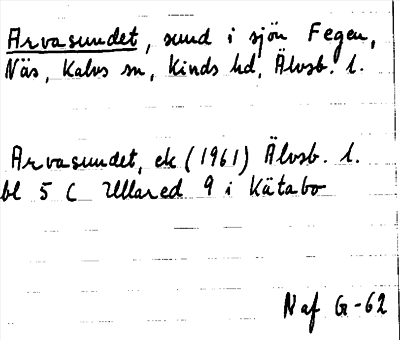 Arvasundet, sund i sjön Fegen,
Näs, Kalvs sn, Kinds hd, Älvsb. l.
Arvasundet, ek (1961) Älvsb. l.
bl 5 C Ullared 9 i Kätabo
Naf G-62